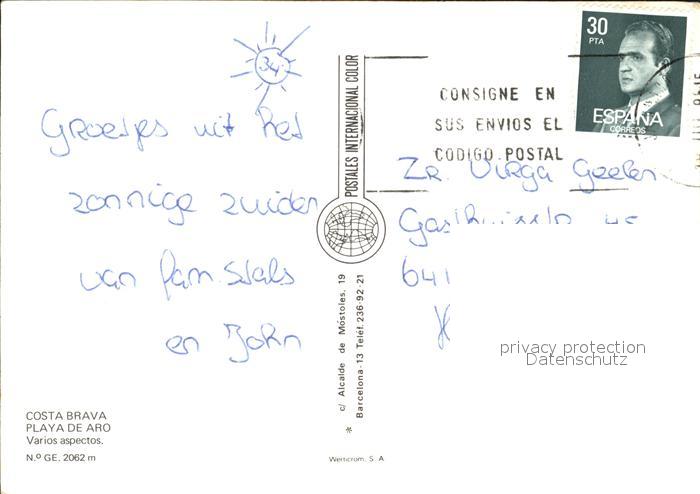 34°
30
PTA
ESPAÑA
CORREOS
CONSIGNE EN
SUS ENVIOS EL
CODIGO POSTAL
Groetjes uit het
zonnige zuiden
van fam. Stals
en John
POSTALES INTERNACIONAL COLOR
c/ Alcalde de Móstoles, 19
Barcelona-13 Teléf. 236-92-21
*
Zr. Virga Geelen
641
privacy protection
Datenschutz
COSTA BRAVA
PLAYA DE ARO
Varios aspectos.
N.º GE. 2062 m
Werticrom, S. A.